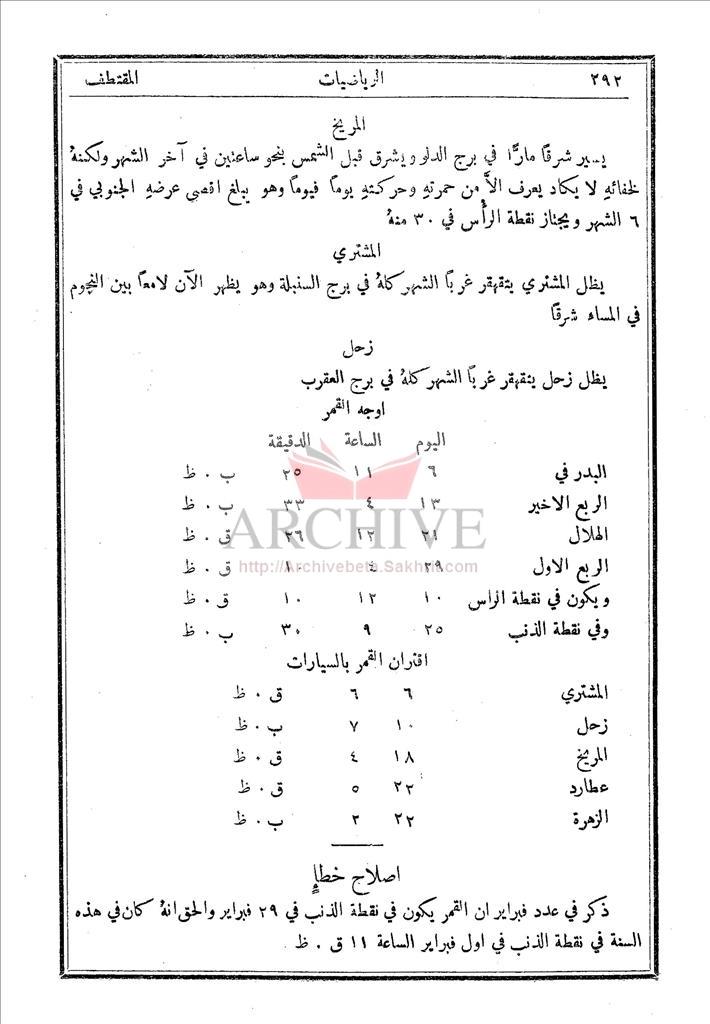 ٢٩٢ الرياضيات المقتطف
المريخ
يسير شرقًا مارًّا في برج الدلو ويشرق قبل الشمس بنحو ساعتين في آخر الشهر ولكنهُ
لخفائهِ لا يكاد يعرف الَّا من حمرتهِ وحركتهِ يومًا فيومًا وهو يبلغ اقصى عرضهِ الجنوبي في
٦ الشهر ويجتاز نقطة الرأْس في ٣٠ منهُ
المشتري
يظل المشتري يتقهقر غربًا الشهر كلهُ في برج السنبلة وهو يظهر الآن لامعًا بين النجوم
في المساء شرقًا
زحل
يظل زحل يتقهقر غربًا الشهر كلهُ في برج العقرب
اوجه القمر
اليوم الساعة الدقيقة
البدر في ٦ ١١ ٢٥ ب ٠ ظ
الربع الاخير ١٣ ٤ ٣٣ ب ٠ ظ
الهلال ٢١ ١٢ ٢٦ ق ٠ ظ
الربع الاول ٢٩ ٤ ق ٠ ظ
ويكون في نقطة الراس ١٠ ١٢ ١٠ ق ٠ ظ
وفي نقطة الذنب ٢٥ ٩ ٣٠ ب ٠ ظ
ARCHIVE
http://Archivebeta.Sakhrit.com
اقتران القمر بالسيارات
المشتري ٦ ٦ ق ٠ ظ
زحل ١٠ ٧ ب ٠ ظ
المريخ ١٨ ٤ ق ٠ ظ
عطارد ٢٢ ٥ ق ٠ ظ
الزهرة ٢٢ ٢ ب ٠ ظ
اصلاح خطإٍ
ذكر في عدد فبراير ان القمر يكون في نقطة الذنب في ٢٩ فبراير والحق انهُ كان في هذه
السنة في نقطة الذنب في اول فبراير الساعة ١١ ق ٠ ظ